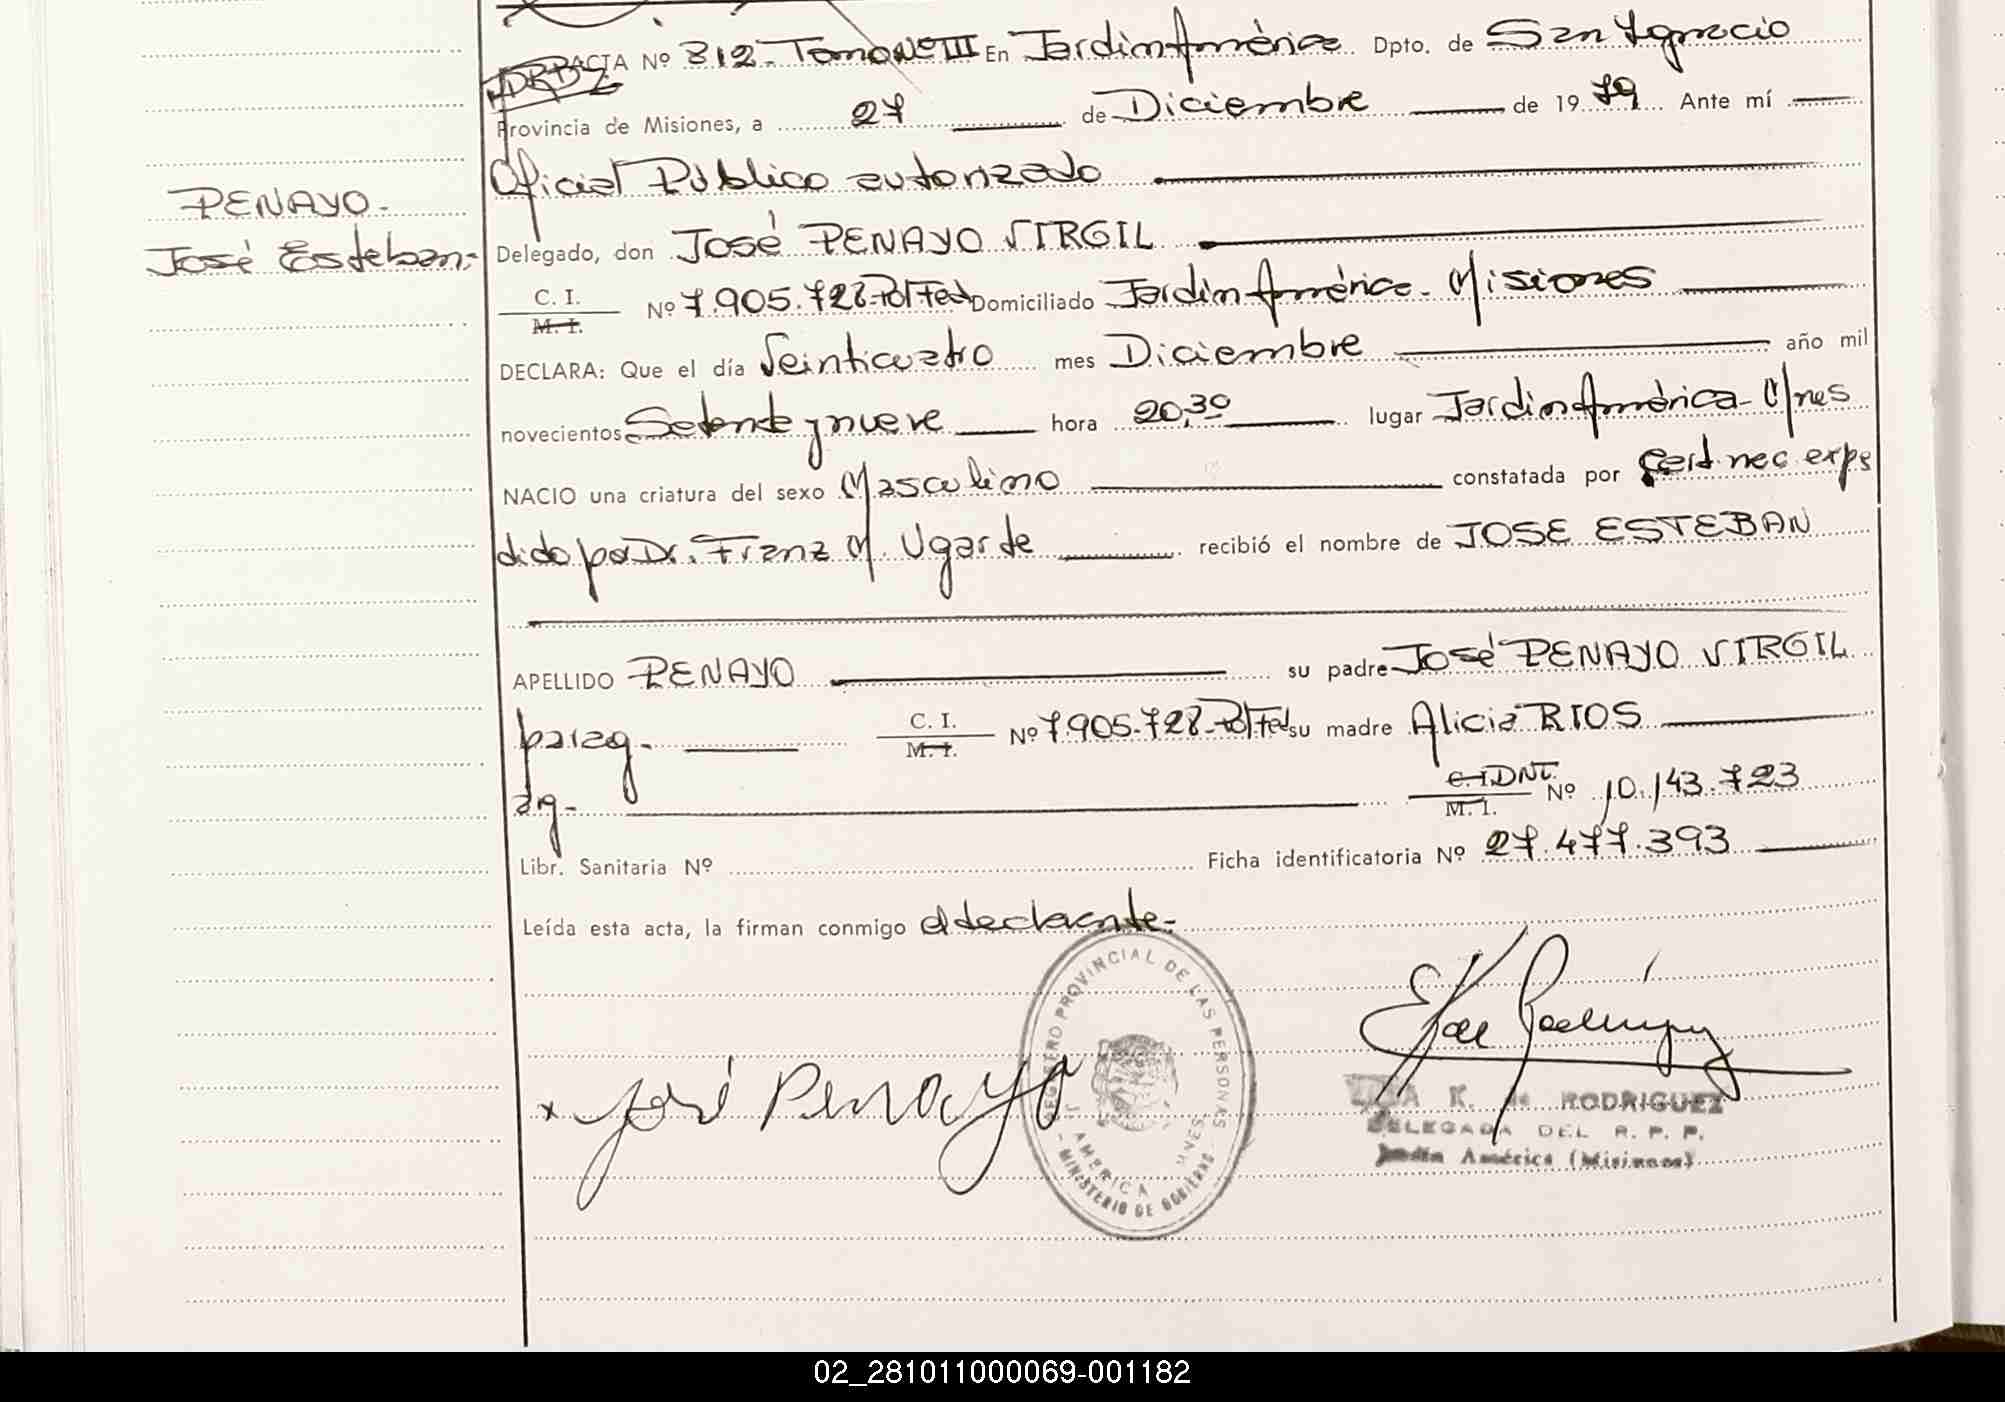 ACTA Nº 312 - Tomo Nº III En Jardin América Dpto. de San Ignacio
Provincia de Misiones, a 27 de Diciembre de 1979 Ante mí
Oficial Público autorizado
PENAYO -
José Esteban.-
Delegado, don José PENAYO VIRGIL
C. I.
M. I.
Nº 7.905.728-Pol Fed Domiciliado Jardin América - Misiones
DECLARA: Que el día Veinticuatro mes Diciembre año mil
novecientos Setenta y nueve hora 20,30 lugar Jardin América - Mnes
NACIO una criatura del sexo Masculino constatada por Cert nec expe
dido por Dr. Franz M. Ugarte recibió el nombre de JOSE ESTEBAN
APELLIDO PENAYO su padre José PENAYO VIRGIL
parag. C. I.
M. I.
Nº 7.905.728-Pol Fed su madre Alicia RIOS
arg - C. I. DNI.
M. I.
Nº 10.143.723
Libr. Sanitaria Nº Ficha identificatoria Nº 27.477.393
Leída esta acta, la firman conmigo el declarante.-
REGISTRO PROVINCIAL DE LAS PERSONAS
J. AMERICA MNES.
- MINISTERIO DE GOBIERNO -
x José Penayo
K. de RODRIGUEZ
DELEGADA DEL R. P. P.
Jardín América (Misiones)
02_281011000069-001182